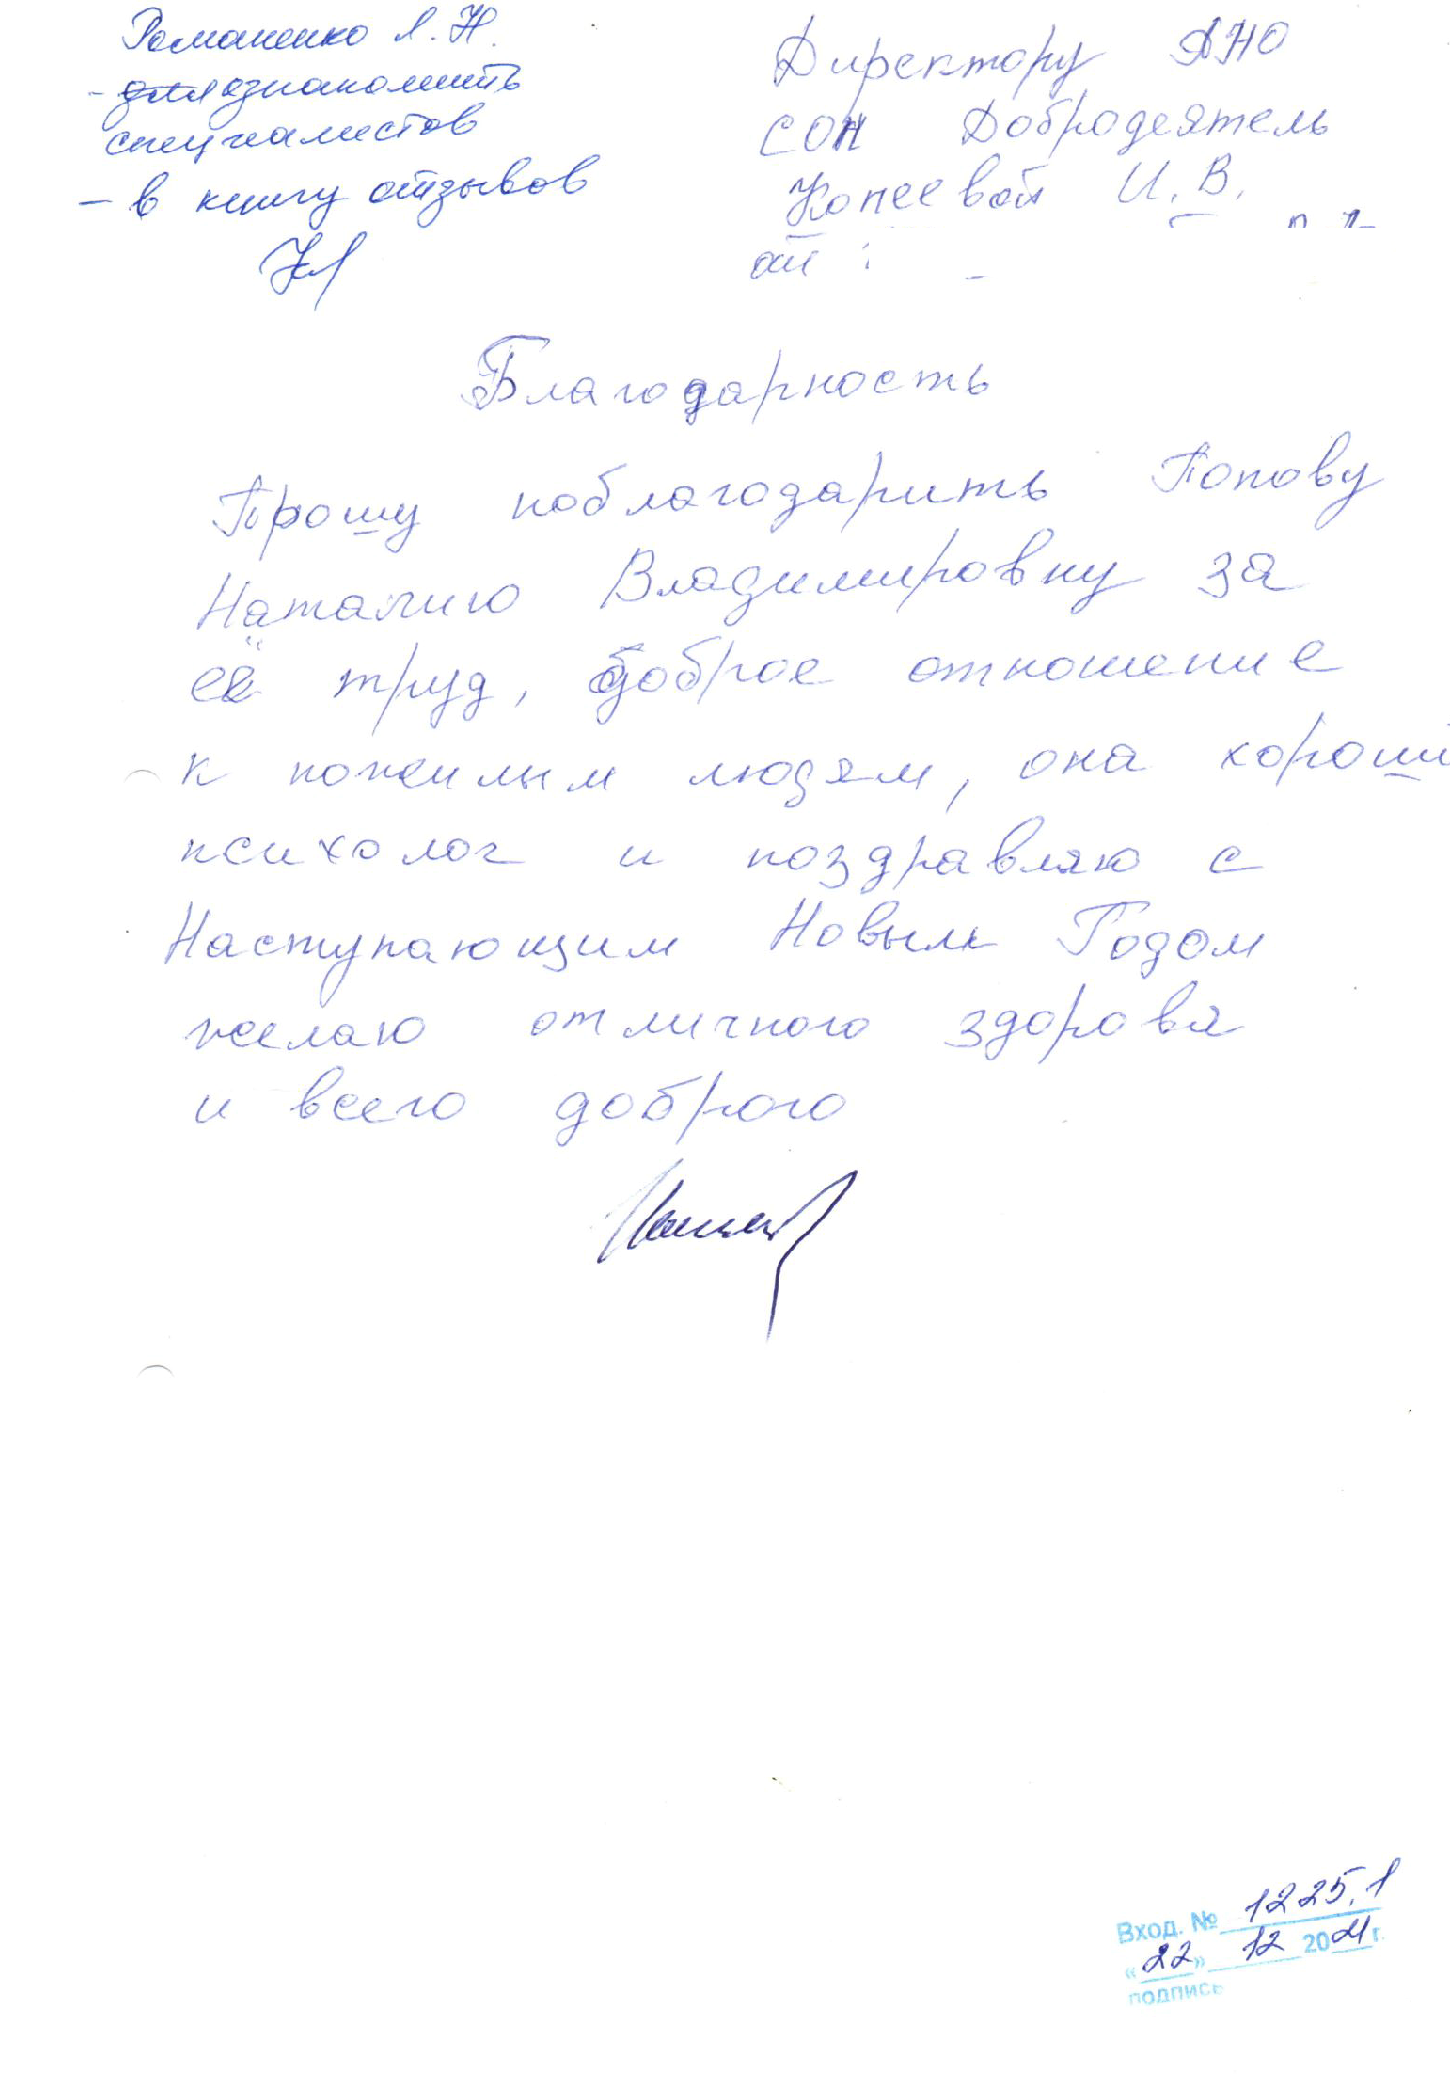 Романенко Л.Н.
- ознакомить
специалистов
- в книгу отзывов
Директору АНО
СОН Добродеятель
Копеевой И.В.
от
Благодарность
Прошу поблагодарить Попову
Наталию Владимировну за
её труд, доброе отношение
к пожилым людям, она хорош
психолог и поздравляю с
Наступающим Новым Годом
желаю отличного здоровя
и всего доброго
Вход. № 1225.1
«22» 12 2021 г.
подпись